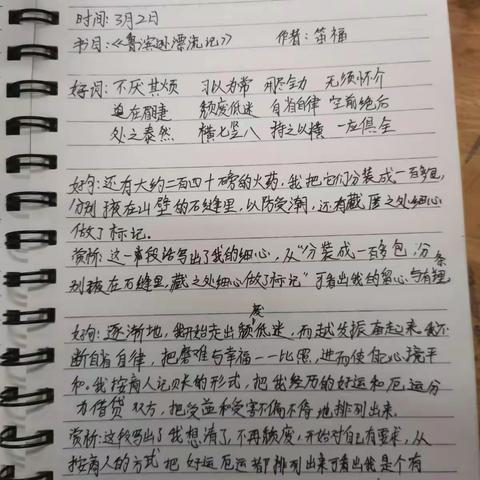 时间：3月2日
书目：《鲁滨逊漂流记》 作者：笛福
好词：不厌其烦 习以为常 竭尽全力 无须怀介
迫在眉睫 颓废低迷 自省自律 空前绝后
处之泰然 横七竖八 持之以横 一应俱全
好句：还有大约二百四十磅的火药，我把它们分装成一百多包，
分别孩在山壁的石缝里，以防受潮，还有藏匿之处细心
做了标记。
赏析：这一章段话写出了我的细心，从“分装成一百多包，分
别孩在石缝里，藏之处细心做了标记”可看出我的留心与有条理
好句：逐渐地，我开始走出颓废低迷，而越发振奋起来，我不
断自省自律，把磨难与幸福一一比照，进而使自己心境平
和。我按商人记账的形式，把我经历的好运和厄运分
为借贷双方，把受益和受害不偏不倚地排列出来。
赏析：这段写出了我想清了，不再颓废，开始对自己有要求，从
按商人的方式把好运厄运都排列出来可看出我是个有